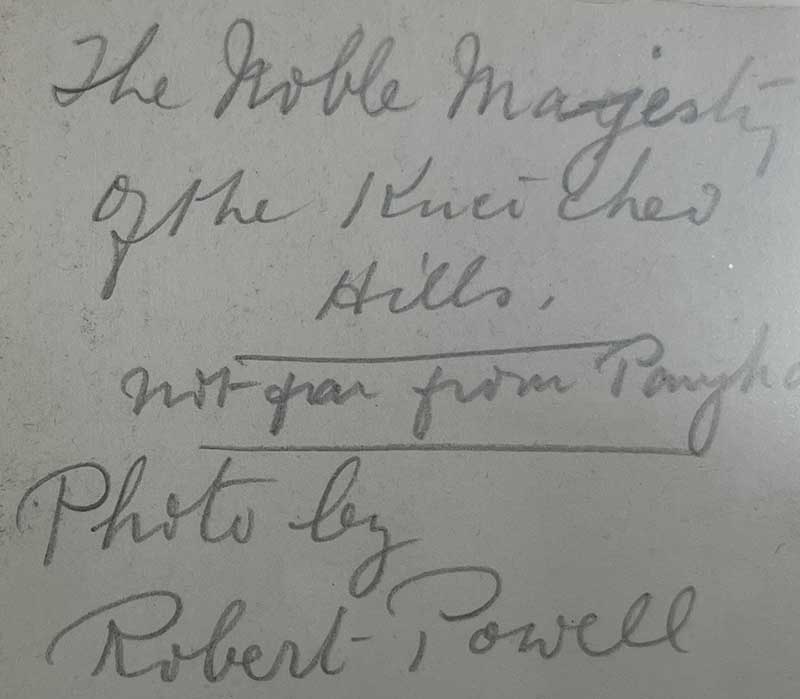 The Noble Majesty
of the Kuei
Hills.
not far from
Photo by
Robert Powell